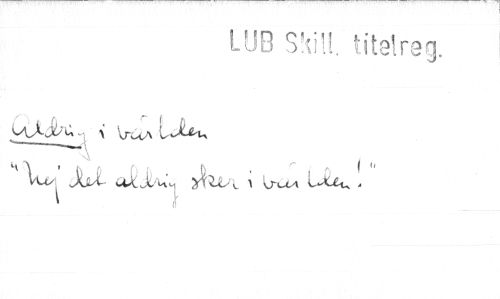 LUB Skill. titelreg.
Aldrig i världen
"Nej det aldrig sker i världen!"